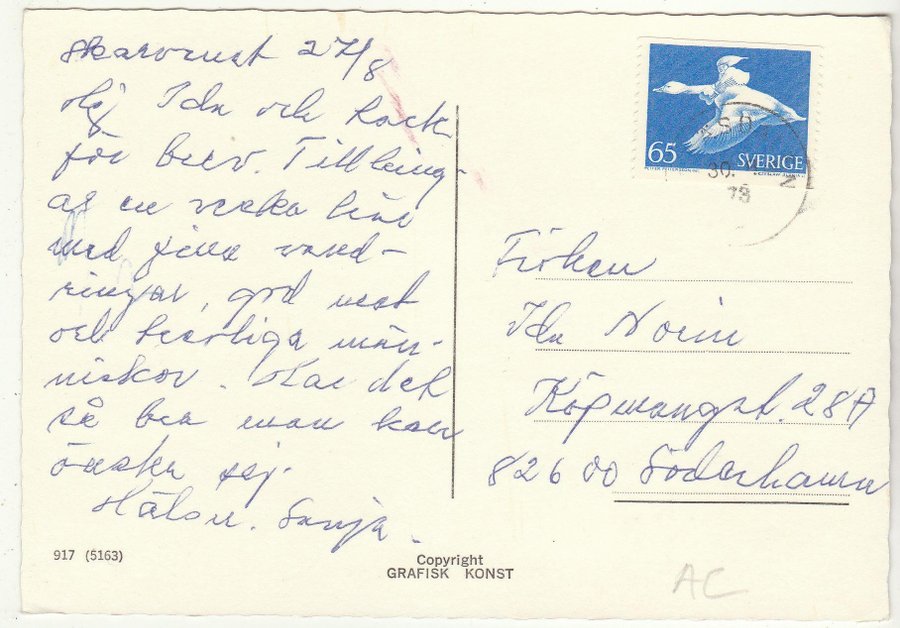 Skarvruet 27/8
Hej Ida och tack
för brev. Tillbring-
ar en vecka här
med fina vand-
ringar, god mat
och trevliga män-
niskor. Har det
så bra man kan
önska sej.
Hälsn. Sonja.
65 SVERIGE
30. 73
Fröken
Ida Norin
Köpmangat. 28A
82600 Söderhamn
917 (5163)
Copyright
GRAFISK KONST
AC